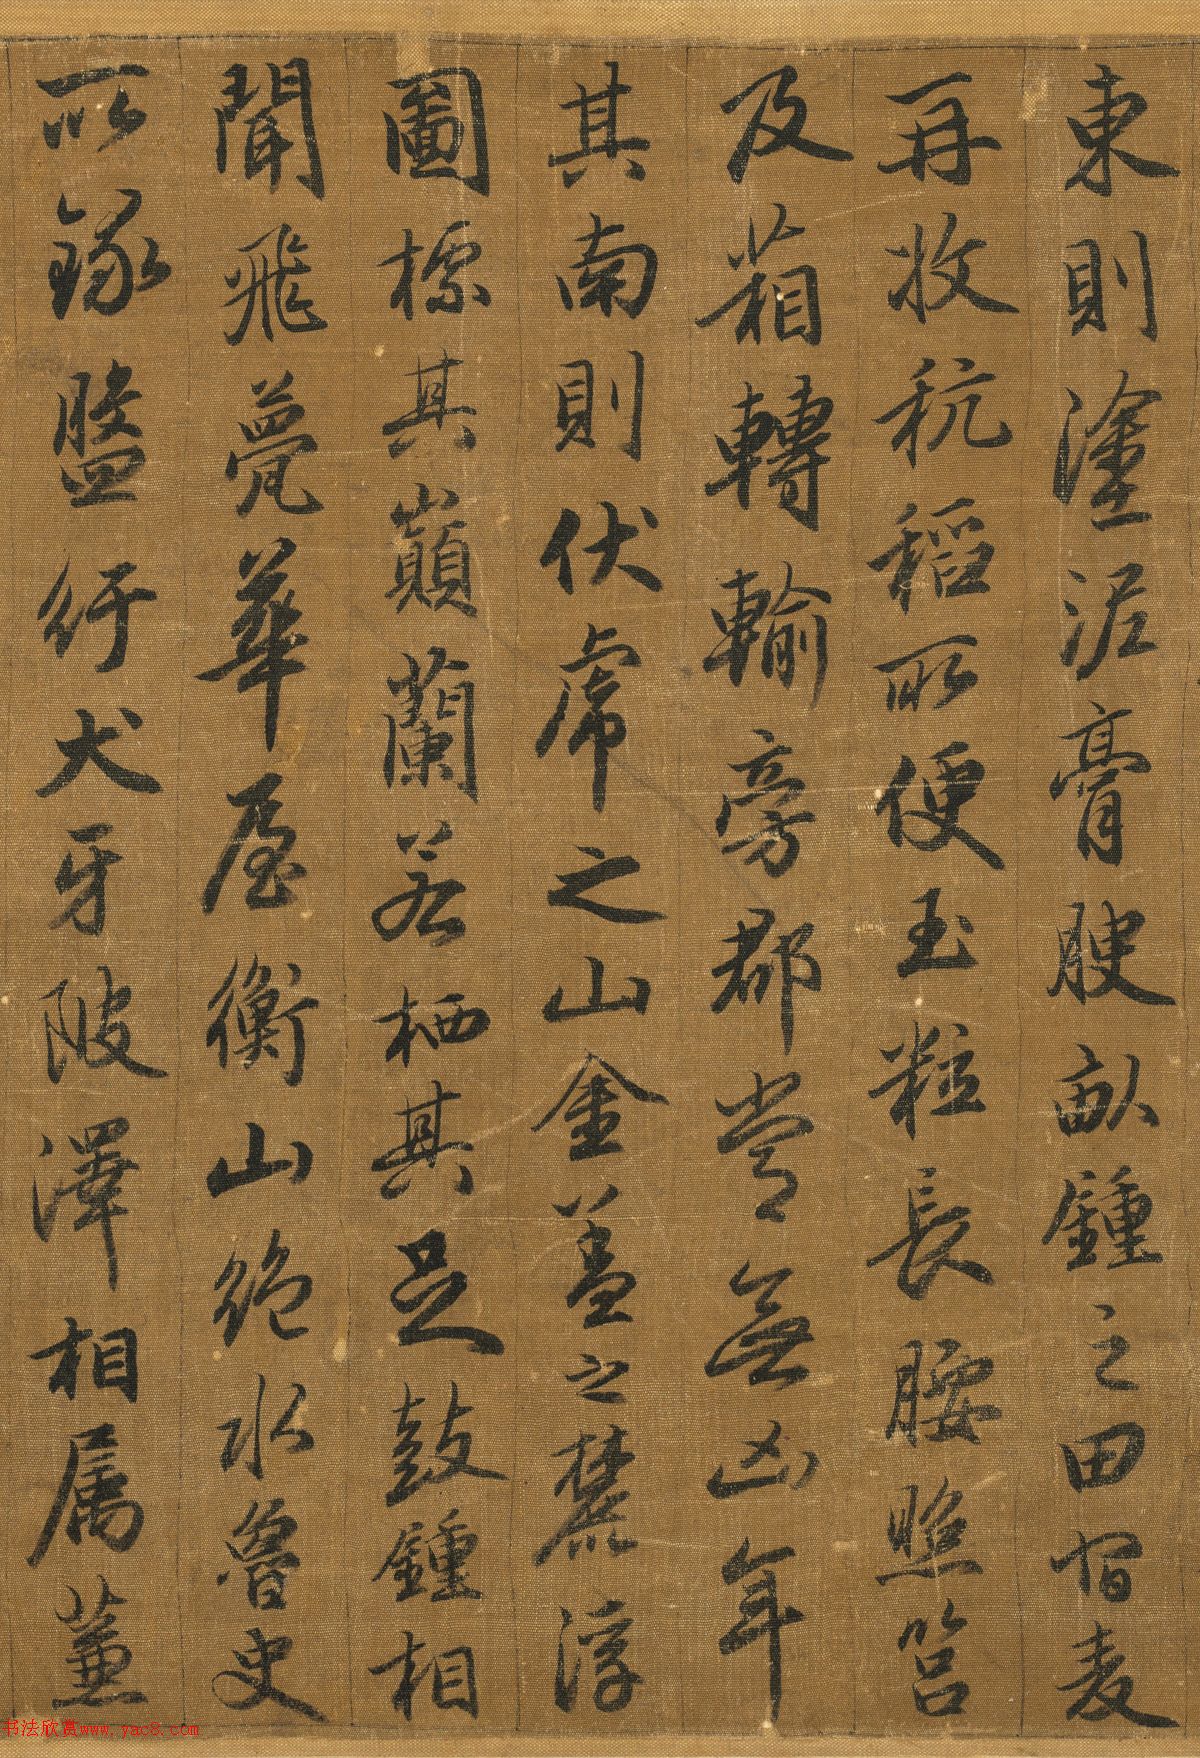 東則塗泥膏腴畝鍾之田宿麦
再收秔稻所便玉粒長腰照筥
及葙轉輸旁郡常無凶年
其南則伏虎之山金盖之麓浮
圖標其巔蘭若栖其足鼓鍾相
聞飛甍華屋衡山絶水魯史
所錄盤紆犬牙陂澤相属蒹
书法欣赏www.yac8.com